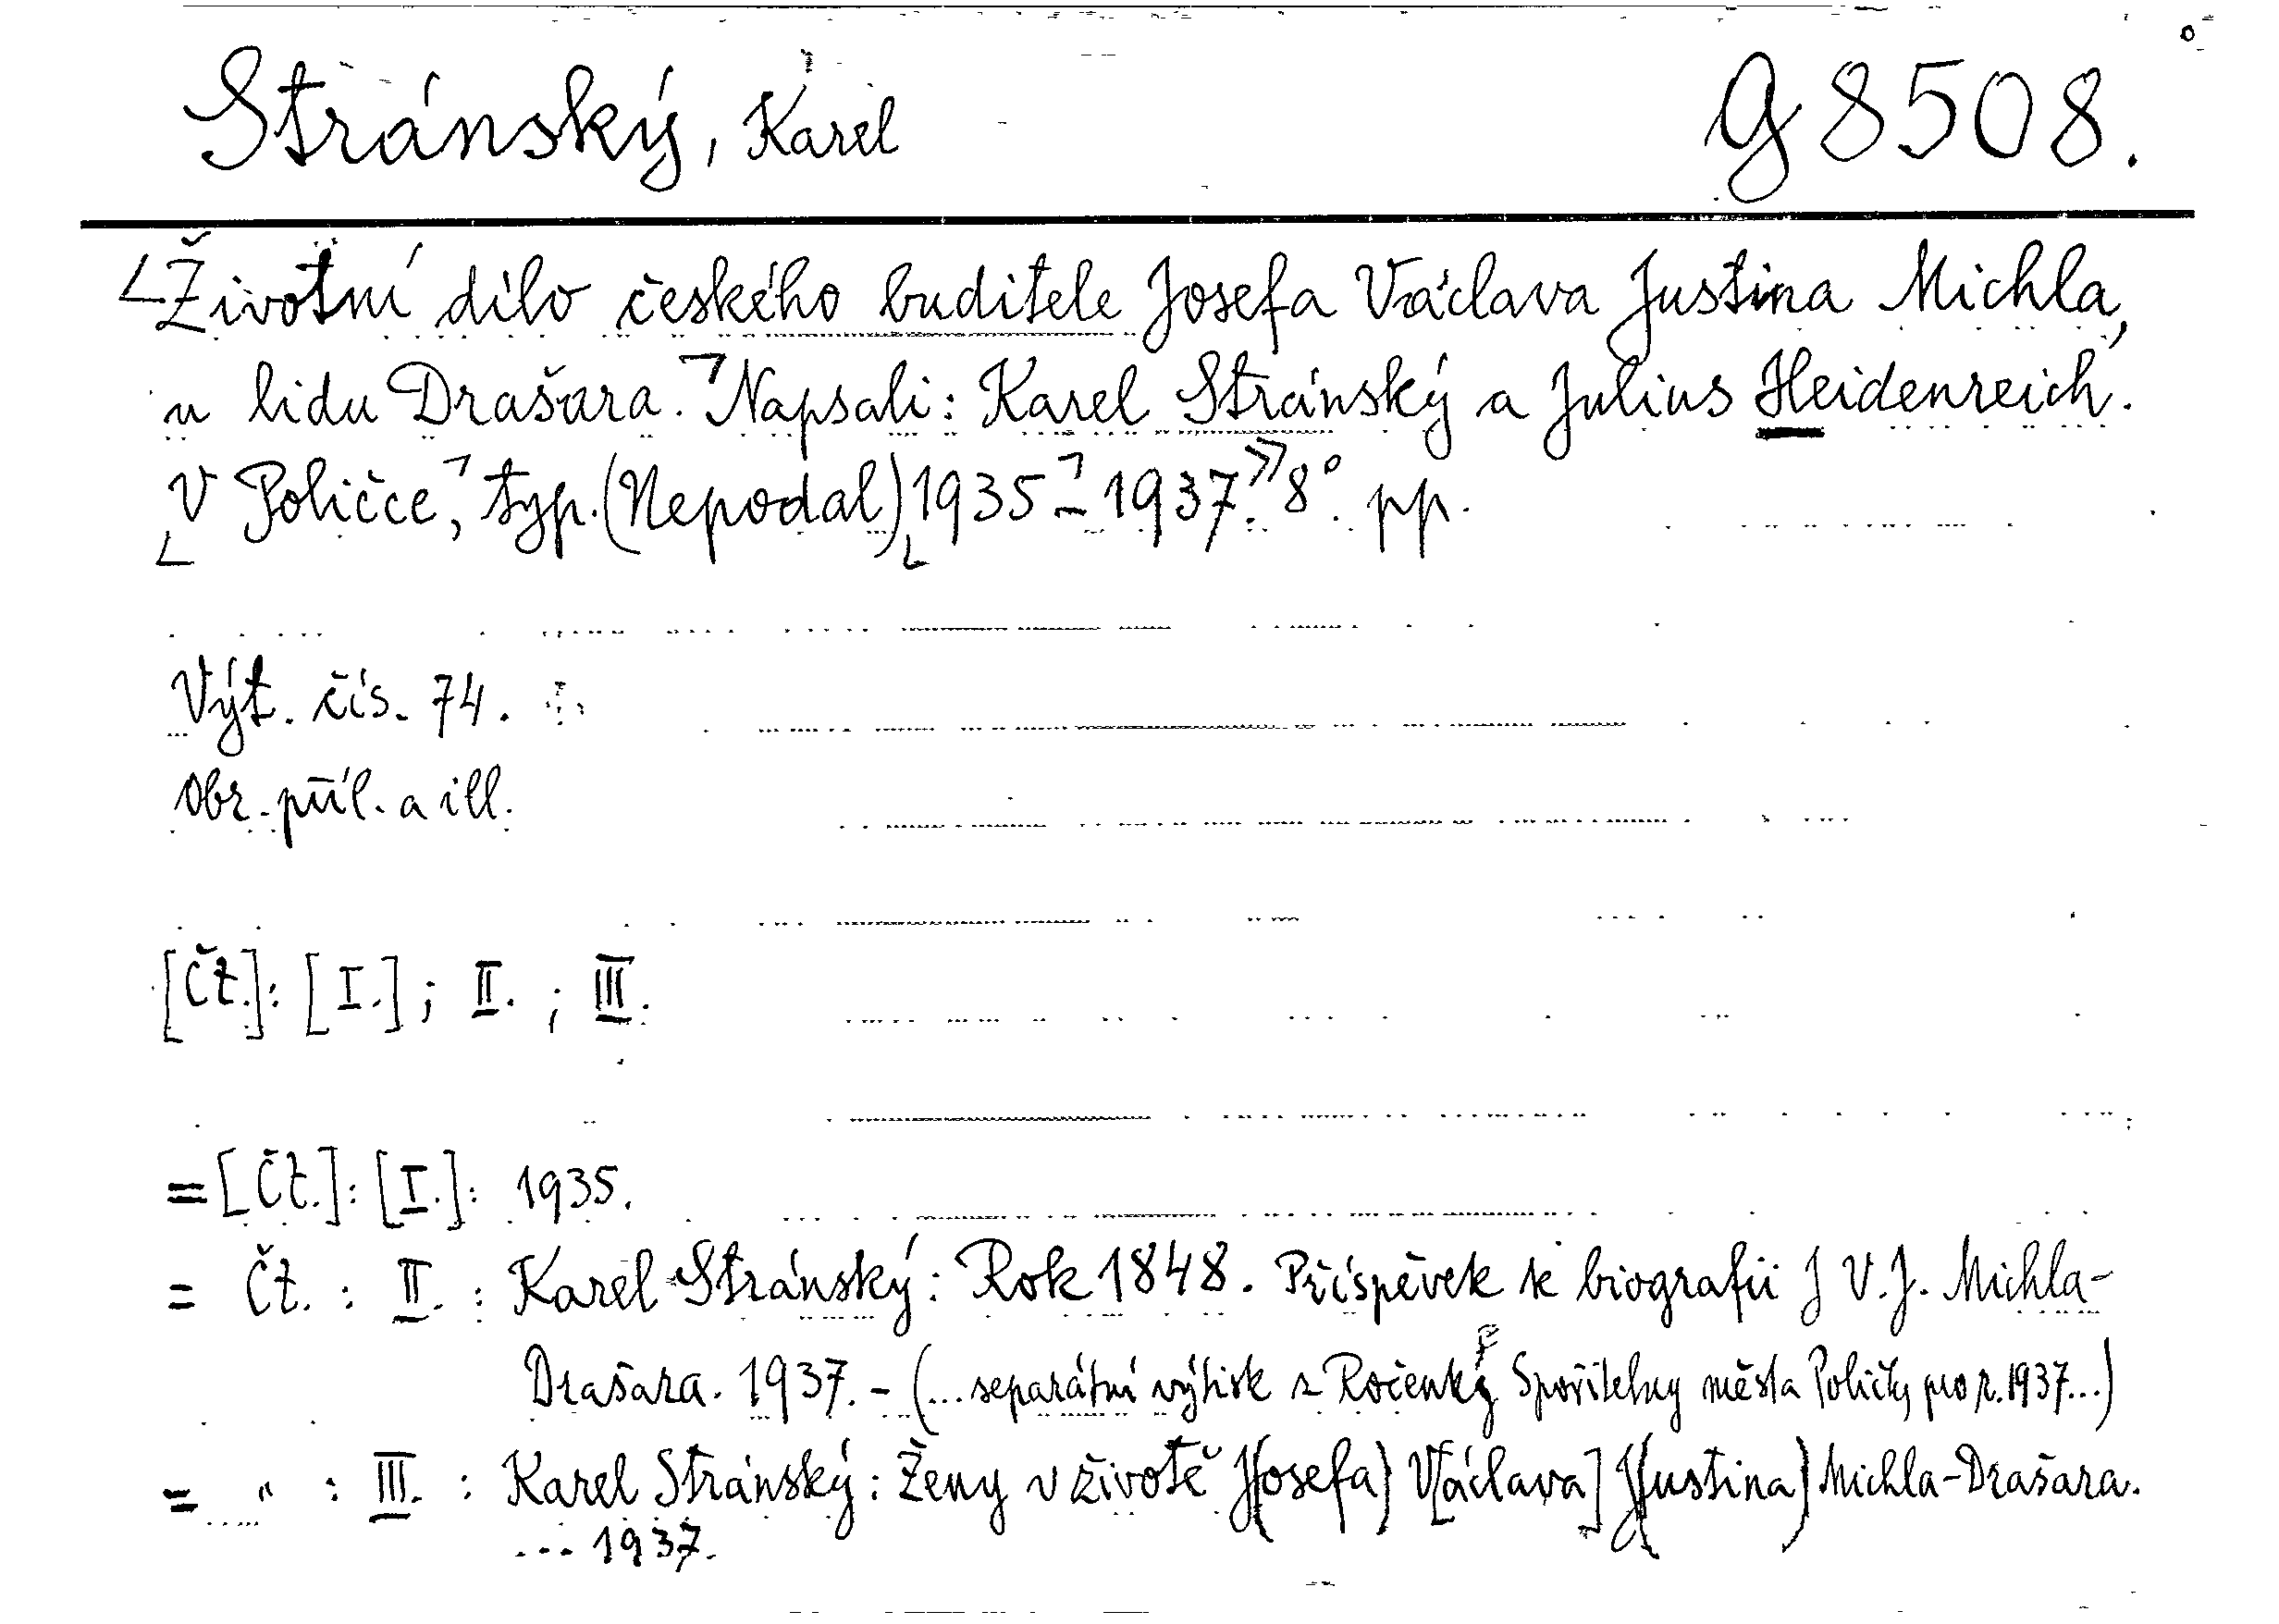 Stránský, Karel g 8508.
Životní dílo českého buditele Josefa Václava Justina Michla,
u lidu Drašara. Napsali: Karel Stránský a Julius Heidenreich.
V Poličce, typ. (Nepodal) 1935 - 1937. 8°. pp.
Výt. čís. 74.
Obr. příl. a ill.
[Čt.]: [I.]; II. ; III.
= [Čt.]: [I.]: 1935.
= Čt. : II. : Karel Stránský: Rok 1848. Příspěvek k biografii J V. J. Michla-
Drašara. 1937. - (... separátní výtisk z Ročenky Spořitelny města Poličky pro r. 1937...)
= " : III. : Karel Stránský: Ženy v životě J(osefa) V[áclava] J(ustina) Michla-Drašara.
... 1937.